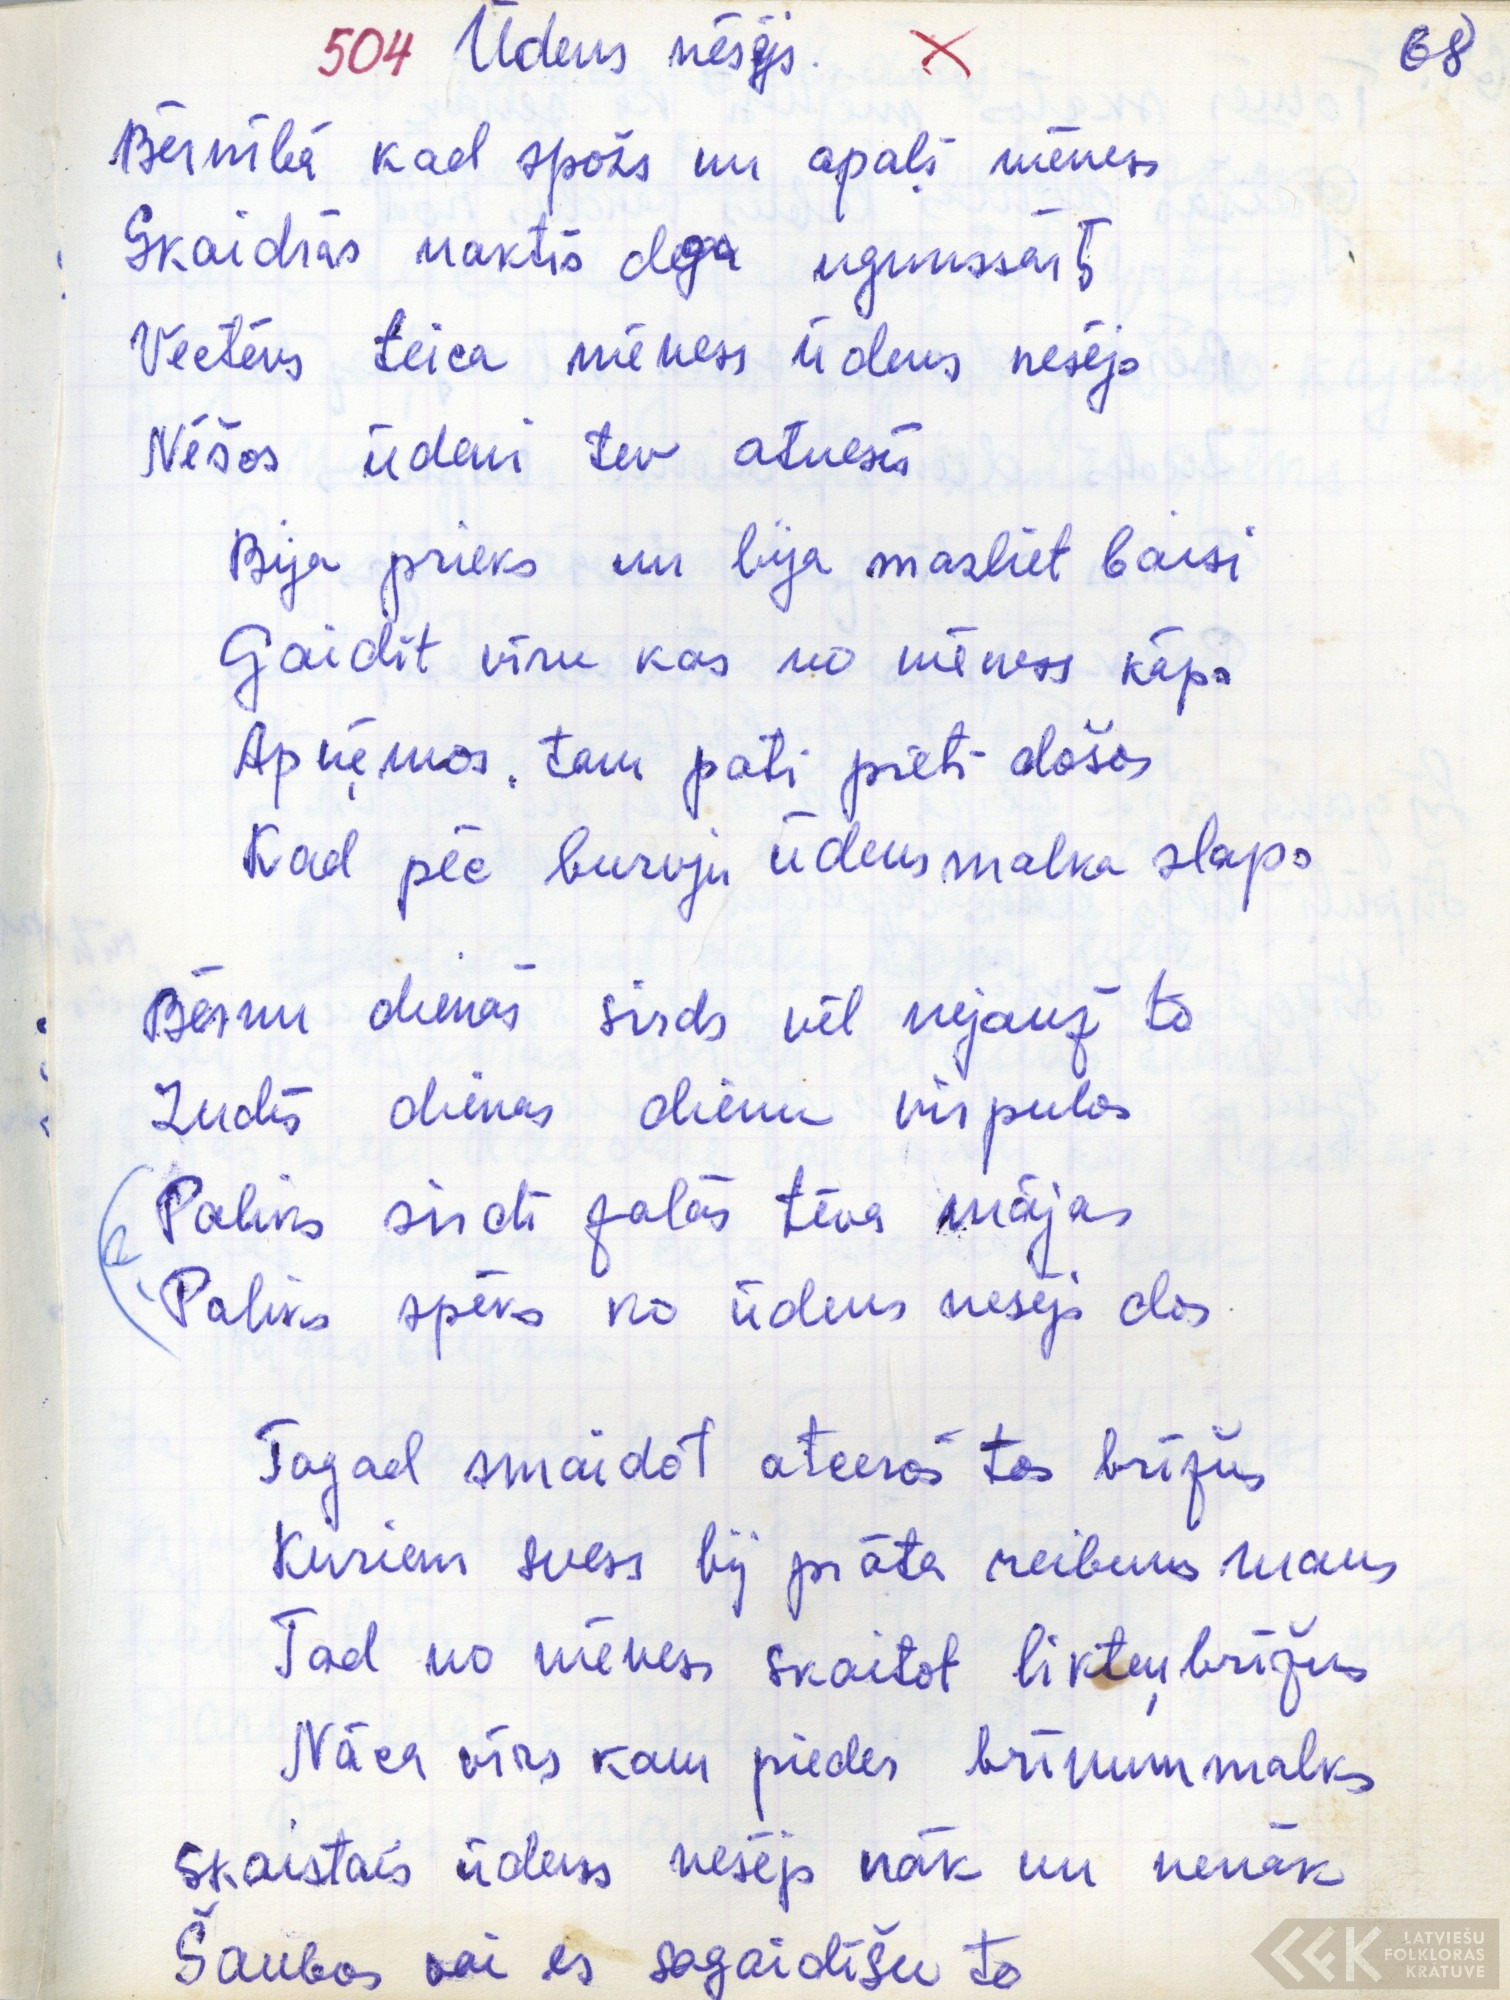 504 Ūdens nēsējs. 68
Bērnībā kad spožs un apaļš mēness
Skaidrās naktīs dega ugunssārts
Vectēvs teica mēness ūdens nesējs
Nēšos ūdeni tev atnesīs
Bija prieks un bija mazliet baisi
Gaidīt vīru kas no mēness kāps
Apņēmos, tam pati pretī došos
Kad pēc burvju ūdens malka slāps
Bērnu dienās sirds vēl nejauž to
Zudīs dienas dienu virpulos
Paliks sirdī zaļās tēva mājas
Paliks spēks ko ūdens nesējs dos
Tagad smaidot atceros tos brīžus
Kuriem svess bij prāta reibums mans
Tad no mēness skaitot likteņbrīžus
Nāca vīrs kam piederbrīnummalks
Skaistais ūdens nesējs nāk un nenāk
Šaubos vai es sagaidīšu to
LATVIEŠU
FOLKLORAS
KRĀTUVE